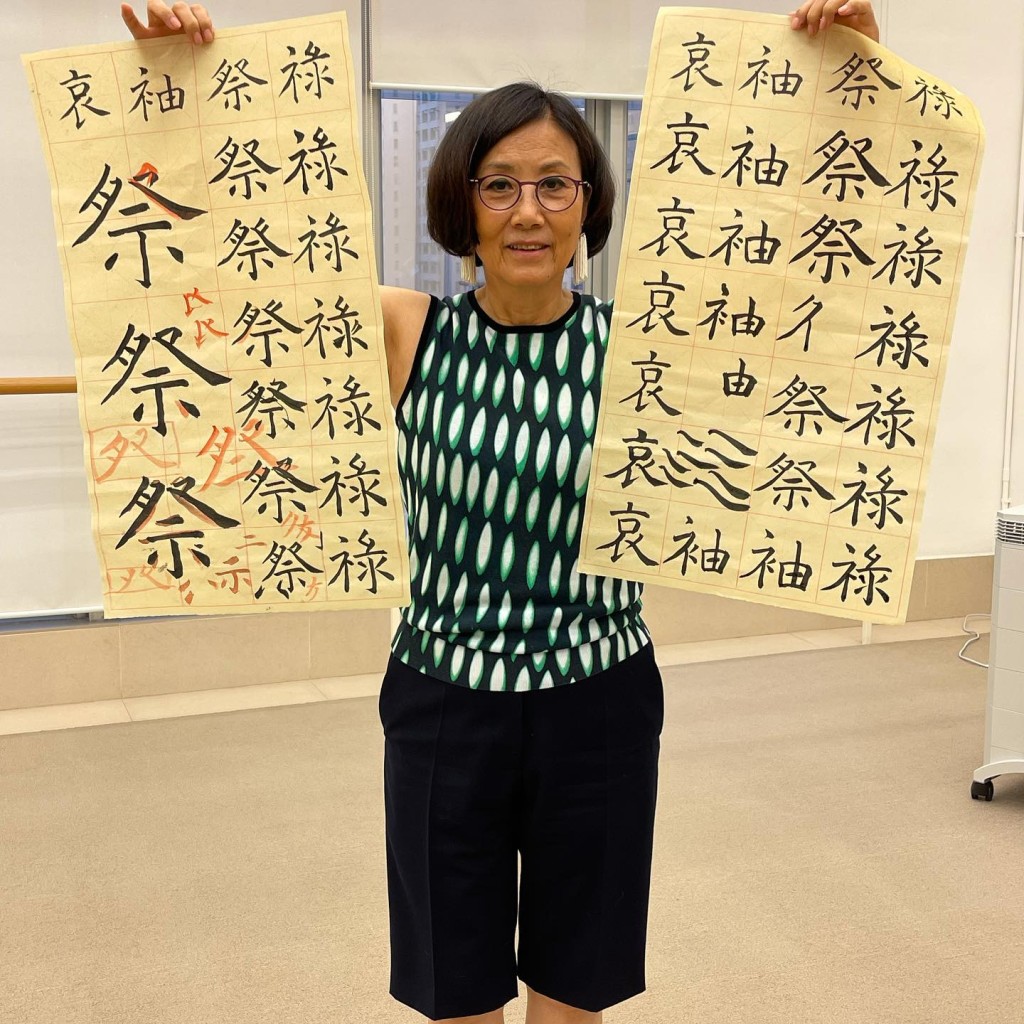 哀袖祭祿
祭祭祿
祭祿
祭祭祿
祭祿
祭祭祿
示祭祿
哀袖祭祿
哀袖祭祿
哀袖祭祿
哀袖祿
哀由祭祿
哀祭祿
哀袖袖祿